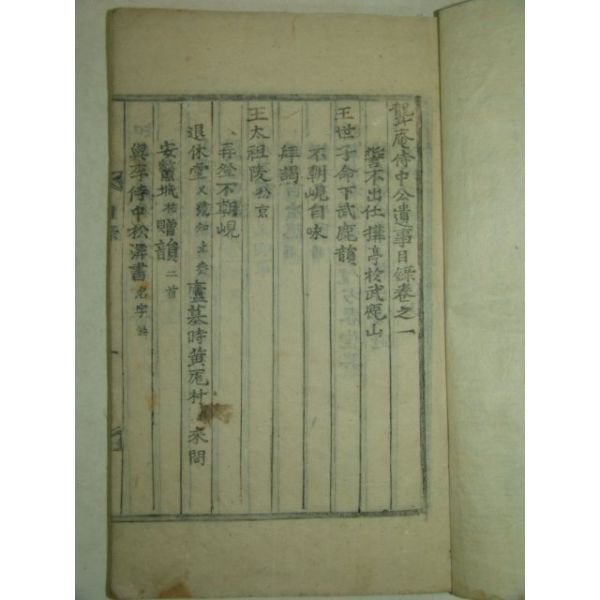 聾庵侍中公遺事目錄卷之一
誓不出仕搆亭於武鹿山
王世子命下武鹿韻
不朝峴自咏
拜謁
王太祖陵於京
再登不朝峴
退休堂又號知止齋 廬墓時黃尾村 來問
安鷲城祐贈韻二首
與李侍中松溪書名字缺